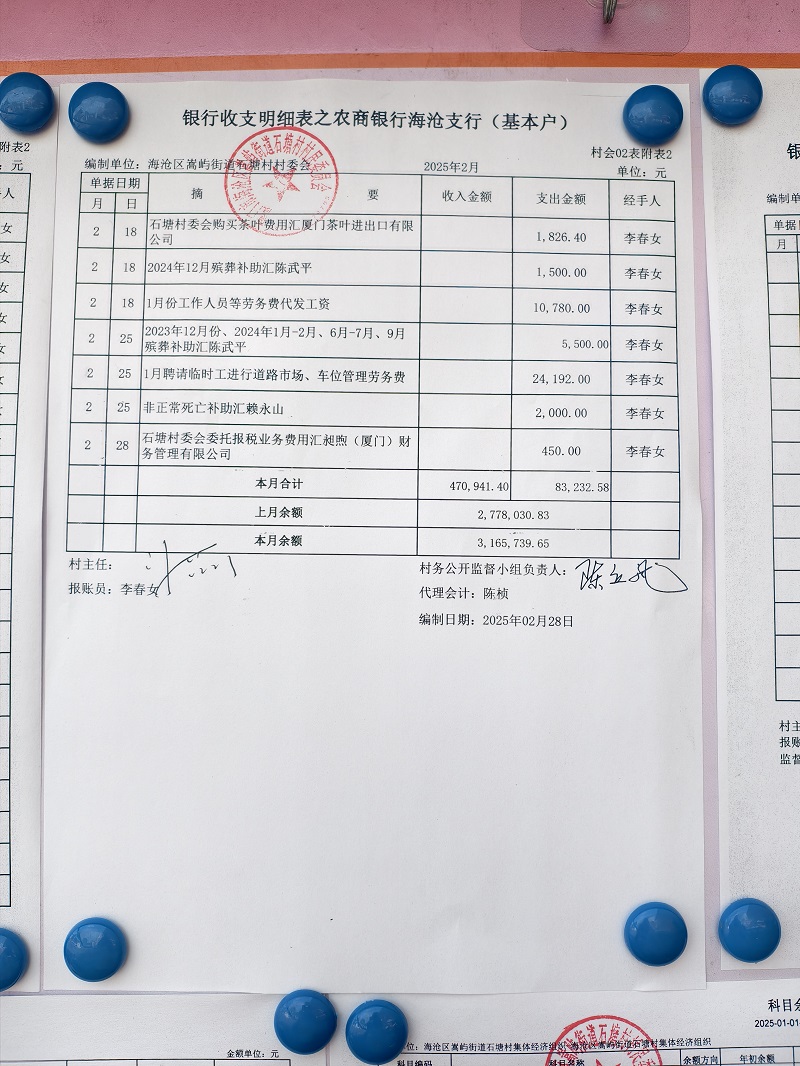 银行收支明细表之农商银行海沧支行（基本户）
村会02表附表2
编制单位：海沧区嵩屿街道石塘村村委会 2025年2月 单位：元
单据日期 摘 要 收入金额 支出金额 经手人
月 日
2 18 石塘村委会购买茶叶费用汇厦门茶叶进出口有限
公司 1,826.40 李春女
2 18 2024年12月殡葬补助汇陈武平 1,500.00 李春女
2 18 1月份工作人员等劳务费代发工资 10,780.00 李春女
2 25 2023年12月份、2024年1月-2月、6月-7月、9月
殡葬补助汇陈武平 5,500.00 李春女
2 25 1月聘请临时工进行道路市场、车位管理劳务费 24,192.00 李春女
2 25 非正常死亡补助汇赖永山 2,000.00 李春女
2 28 石塘村委会委托报税业务费用汇昶煦（厦门）财
务管理有限公司 450.00 李春女
本月合计 470,941.40 83,232.58
上月余额 2,778,030.83
本月余额 3,165,739.65
村主任： 村务公开监督小组负责人：
报账员：李春女 代理会计：陈桢
编制日期：2025年02月28日
附表2
：元
人
女
女
女
女
女
女
女
银
编制单
单据日
月
村主
报账
监督
金额单位：元
位：海沧区嵩屿街道石塘村集体经济组织-海沧区嵩屿街道石塘村集体经济组织
科目编码 科目名称 余额方向 年初余额
科目余
2025-01-01